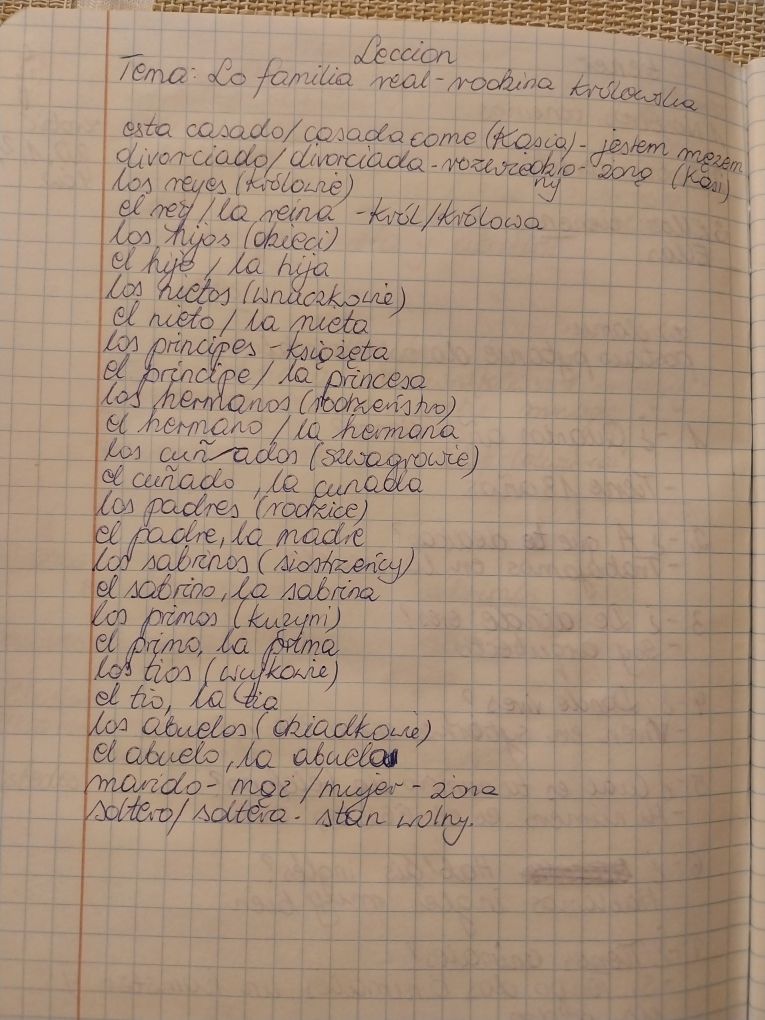 Leccion
Tema: La familia real - rodzina królewska
esta casado/casada come (Kasia) - jestem mężem
divorciado/divorciada - rozwiedzio- żoną (Kasi)
ny
los reyes (królowie)
el rey/la reina - król/królowa
los hijos (dzieci)
el hijo, la hija
los nietos (wnuczkowie)
el nieto/la nieta
los principes - książęta
el principe/la princesa
los hermanos (rodzeństwo)
el hermano/la hermana
los cuñados (szwagrowie)
el cuñado, la cunada
los padres (rodzice)
el padre, la madre
los sabrinos (siostrzeńcy)
el sabrino, la sabrina
los primos (kuzyni)
el primo, la prima
los tios (wujkowie)
el tio, la tia
los abuelos (dziadkowie)
el abuelo, la abuela
marido - mąż/mujer - żona
soltero/soltera - stan wolny.